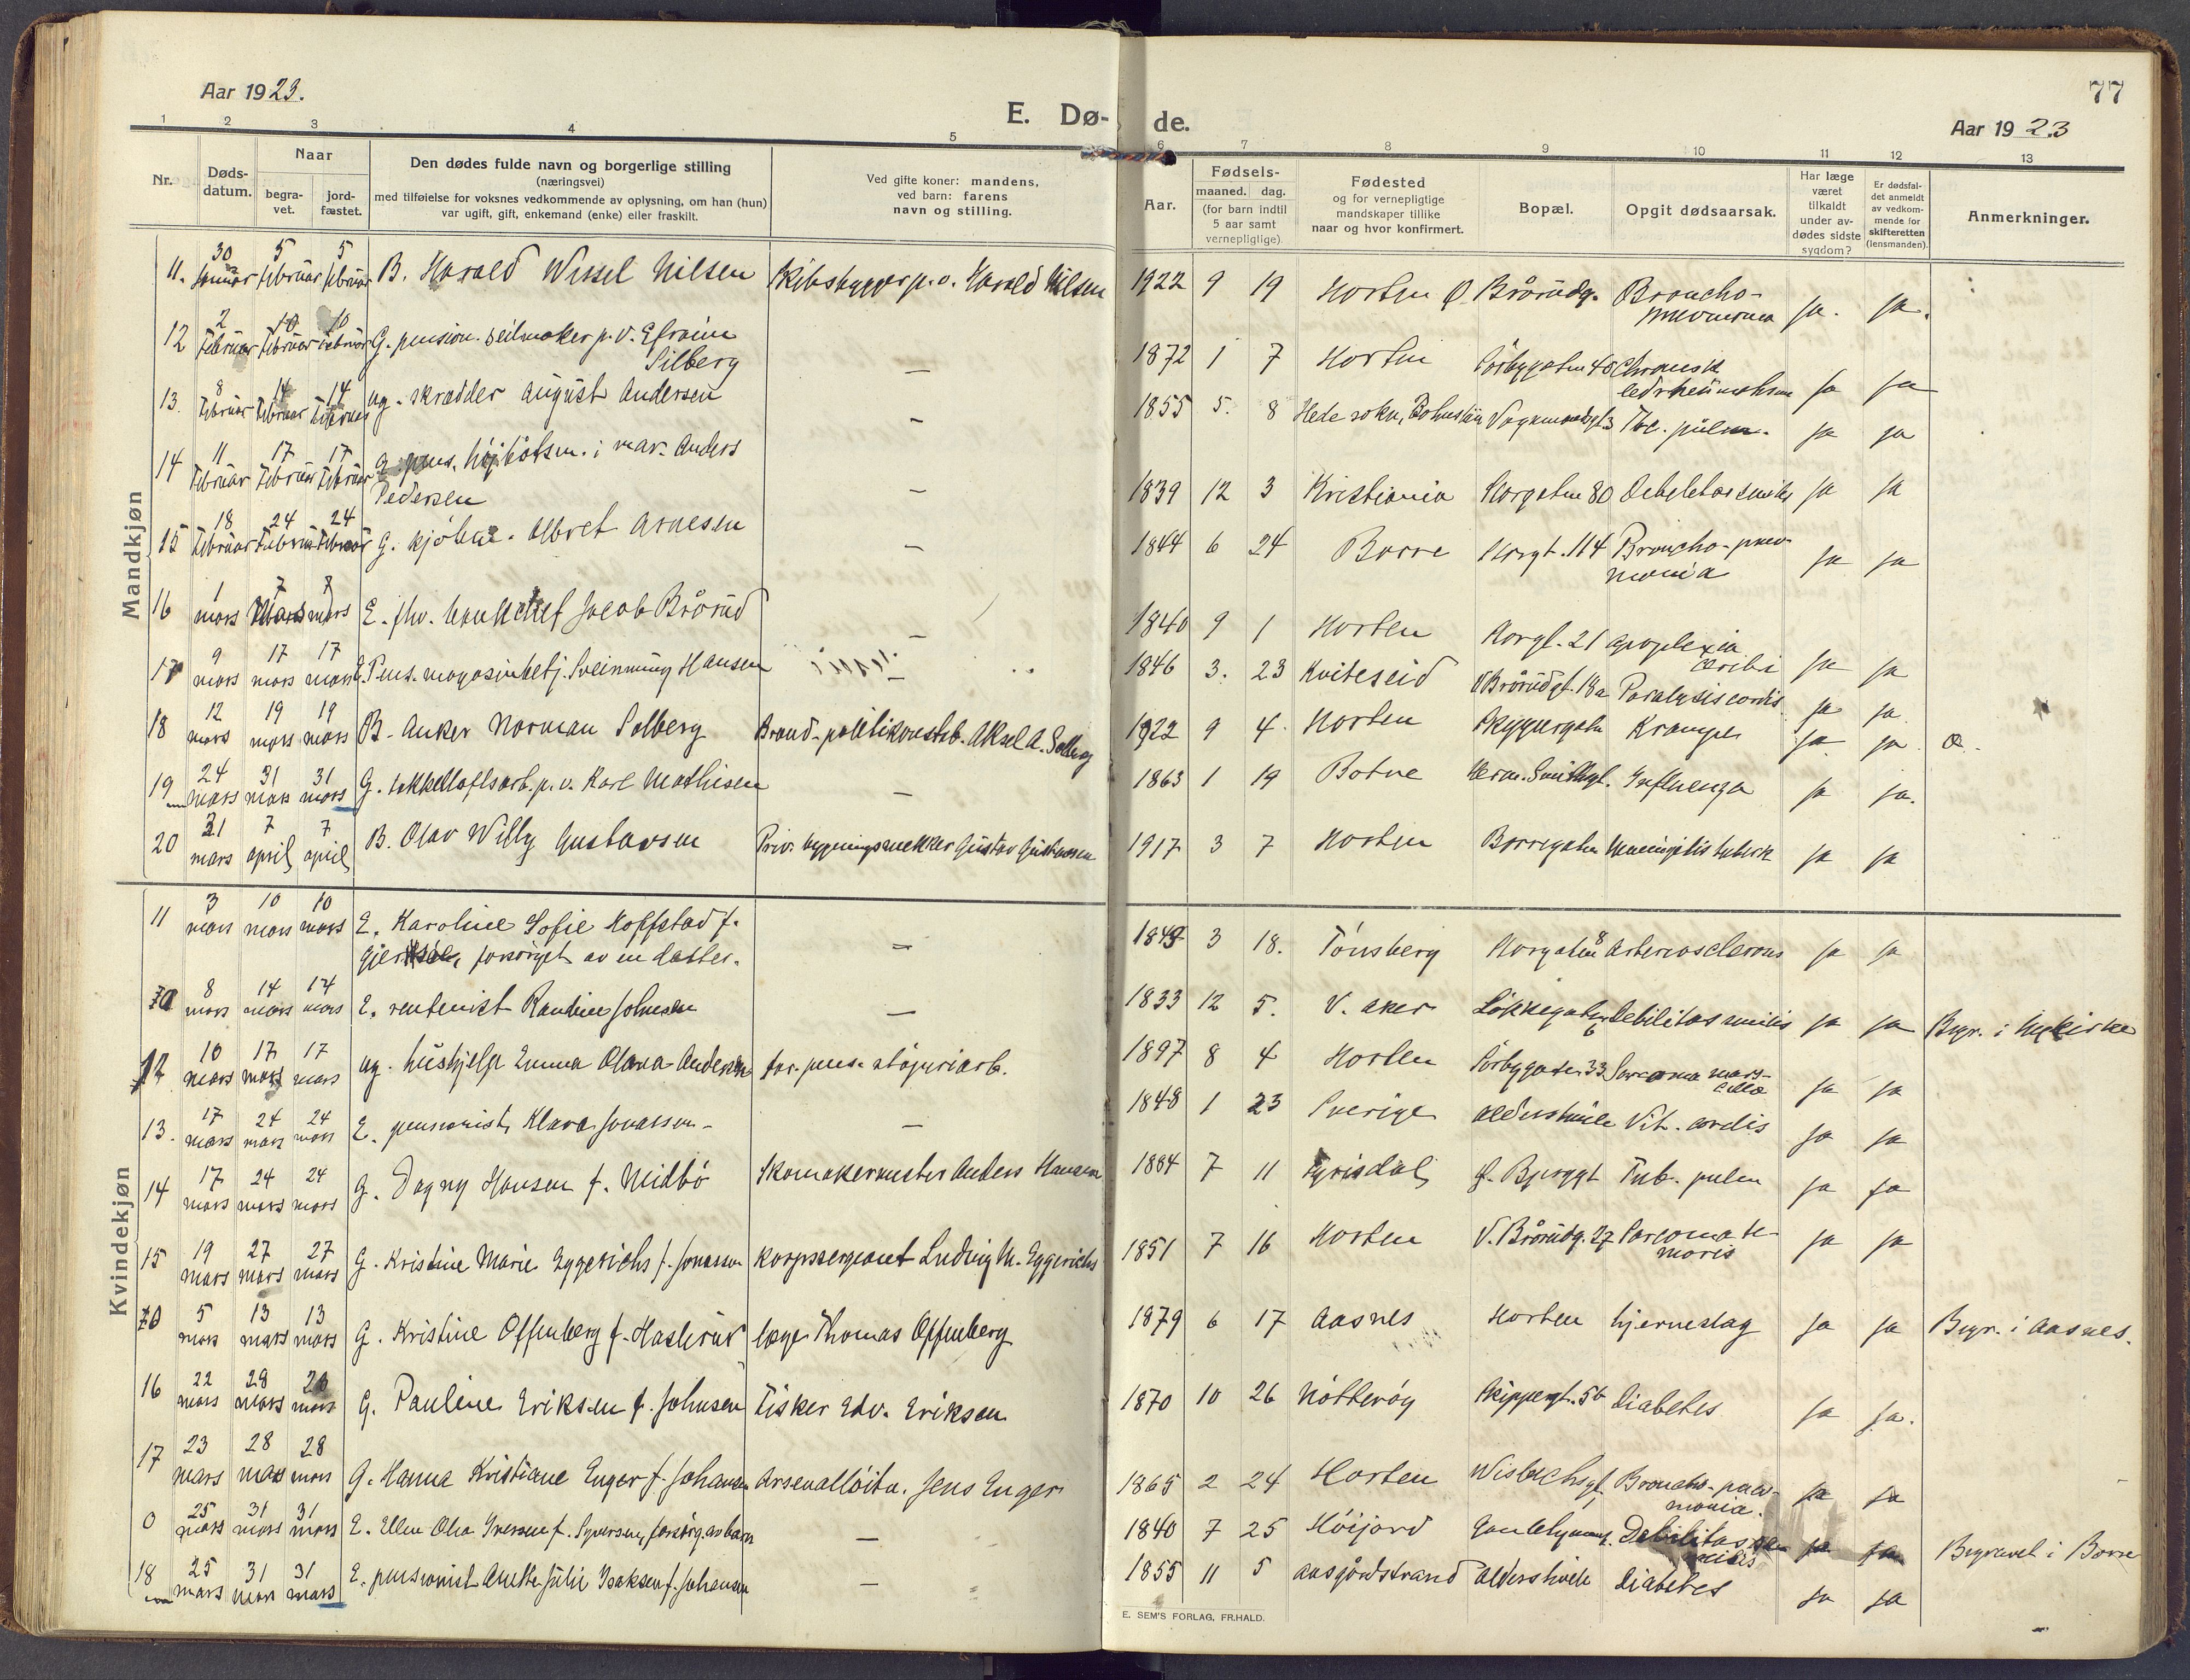 77
Aar 1923.
E. Dø-
de.
Aar 1923
1 2 3 4 5 6 7 8 9 10 11 12 13
Nr.
Døds-
datum.
Naar
begra-
vet.
jord-
fæstet.
Den dødes fulde navn og borgerlige stilling
(næringsvei)
med tilføielse for voksnes vedkommende av oplysning, om han (hun)
var ugift, gift, enkemand (enke) eller fraskilt.
Ved gifte koner: mandens,
ved barn: farens
navn og stilling.
Aar.
Fødsels-
maaned. dag.
(for barn indtil
5 aar samt
vernepligtige)
Fødested
og for vernepligtige
mandskaper tillike
naar og hvor konfirmert.
Bopæl.
Opgit dødsaarsak.
Har læge
været
tilkaldt
under av-
dødes sidste
sygdom?
Er dødsfal-
det anmeldt
av vedkom-
mende for
skifteretten
(lensmanden).
Anmerkninger.
Mandkjøn
11. 30 januar 5 februar 5 februar B. Harald Wessel Nilsen Skibsbygger p.v. Harald Nilsen 1922 9 19 Horten Ø. Brårudg. Broncho-
pneumonia ja. ja.
12 2 februar 10 februar 10 februar G. pension. seilmaker p.v. Efraim
Silberg — 1872 1 7 Horten Sørbygaten 40 Chronisk
ledrheumatisme ja ja
13. 8 februar 14 februar 14 februar ug. skrædder August Andersen — 1855 5. 8 Hede sokn, Bohuslän Vognmandsgt. 3 Tbc. pulm. ja ja
14 11 februar 17 februar 17 februar G. pens. højbåtsm. i mar. Anders
Pedersen — 1839 12 3 Kristiania Storgaten 80 Debilitas senilis ja ja
15 18 februar 24 februar 24 februar G. kjøbm. Albret Arnesen — 1844 6 24 Borre Storgt. 114 Broncho-pneu-
monia ja ja
16 1 mars 7 mars 7 mars E. fhv. bankchef Jacob Brårud — 1840 9 1 Horten Storgt. 21 apoplexia
cerebri ja ja
17 9 mars 17 mars 17 mars G. Pens. magasinbetj. Sveinung Hansen — 1846 3. 23 Kviteseid V. Brårudgt. 18a Paralysis cordis ja ja
18 12 mars 19 mars 19 mars B. Anker Norman Solberg Brand-politikonstb. Aksel A. Solberg 1922 9 4 Horten Skippergaten Kramper ja ja
19 24 mars 31 mars 31 mars G. takkelloftsarb. p.v. Karl Mathisen — 1863 1 19 Botne Herm. Smithsgt. Influenza ja ja.
20 31 mars 7 april 7 april B. Olav Willy Gustavsen Priv. bygningssnekker Gustav Gustavsen 1917 3 7 Horten Borregaten Meningitis tuberk ja ja
Kvindekjøn
11 3 mars 10 mars 10 mars E. Karoline Sofie Hoffstad f.
forsørget av en datter. — 1849 3 18. Tønsberg Storgaten 8 Arteriosclerosis ja ja
8 mars 14 mars 14 mars E. rentenist Randine Johnsen — 1833 12 5. V. Aker Løkkegaten
6 Debilitas senilis ja ja Begr. i Nykirke
12 10 mars 17 mars 17 mars ug. hushjelp Emma Olava Andersen far. pens. støperiarb. 1897 8 4 Horten Sørbygaten 33 Sarcoma ja ja
13. 17 mars 24 mars 24 mars E. pensionist Klara Jonassen — 1848 1 23 Sverige Aldershvile Vit. cordis ja ja
14 17 mars 24 mars 24 mars G. Dagny Hansen f. Midbø Skomakermester Anders Hansen 1884 7 11 Fyrisdal Ø. Bjerggt Tub. pulm ja ja
15 19 mars 27 mars 27 mars G. Kristine Marie Eggerichs f. Jonassen Korpssergeant Ludvig M. Eggerichs 1851 7 16 Horten V. Brårudg. 27 Sarcoma fe-
moris ja ja
5 mars 13 mars 13 mars G. Kristine Offenberg f. Haslerud læge Thomas Offenberg 1879 6 17 Aasnes Horten hjerneslag ja ja Begr. i Aasnes.
16 22 mars 28 mars 28 mars G. Pauline Eriksen f. Johnsen Fisker Edv. Eriksen 1870 10 26 Nøtterøy Skippergt. 5b diabetes ja ja.
17 23 mars 28 mars 28 mars G. Hanna Kristiane Enger f. Johansen Arsenalløitn. Jens Enger 1865 2 24 Horten Wisbechsgt. Broncho-pneu-
monia. ja ja
0 25 mars 31 mars 31 mars E. Ellen Olia Iversen f. Syversen, forsørg. av barn — 1840 7 25 Høijord Debilitas sen
ilis ja ja Begravet i Borre
18 25 mars 31 mars 31 mars E. pensionist Anette Julie Isaksen f. Johansen — 1855 11 5 Aasgårdstrand Aldershvile diabetes ja ja
E. SEM'S FORLAG, FR.HALD.